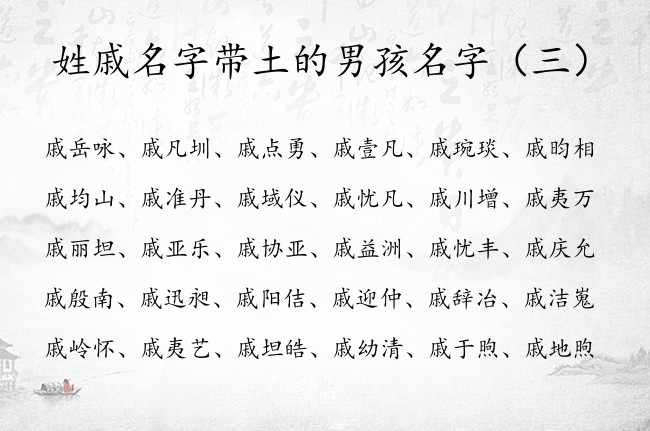 姓戚名字带土的男孩名字（三）
戚岳咏、戚凡圳、戚点勇、戚壹凡、戚琬琰、戚昀相
戚均山、戚准丹、戚域仪、戚忧凡、戚川增、戚夷万
戚丽坦、戚亚乐、戚协亚、戚益洲、戚忧丰、戚庆允
戚殷南、戚迅昶、戚阳佶、戚迎仲、戚辞冶、戚洁嵬
戚岭怀、戚夷艺、戚坦皓、戚幼清、戚于煦、戚地煦